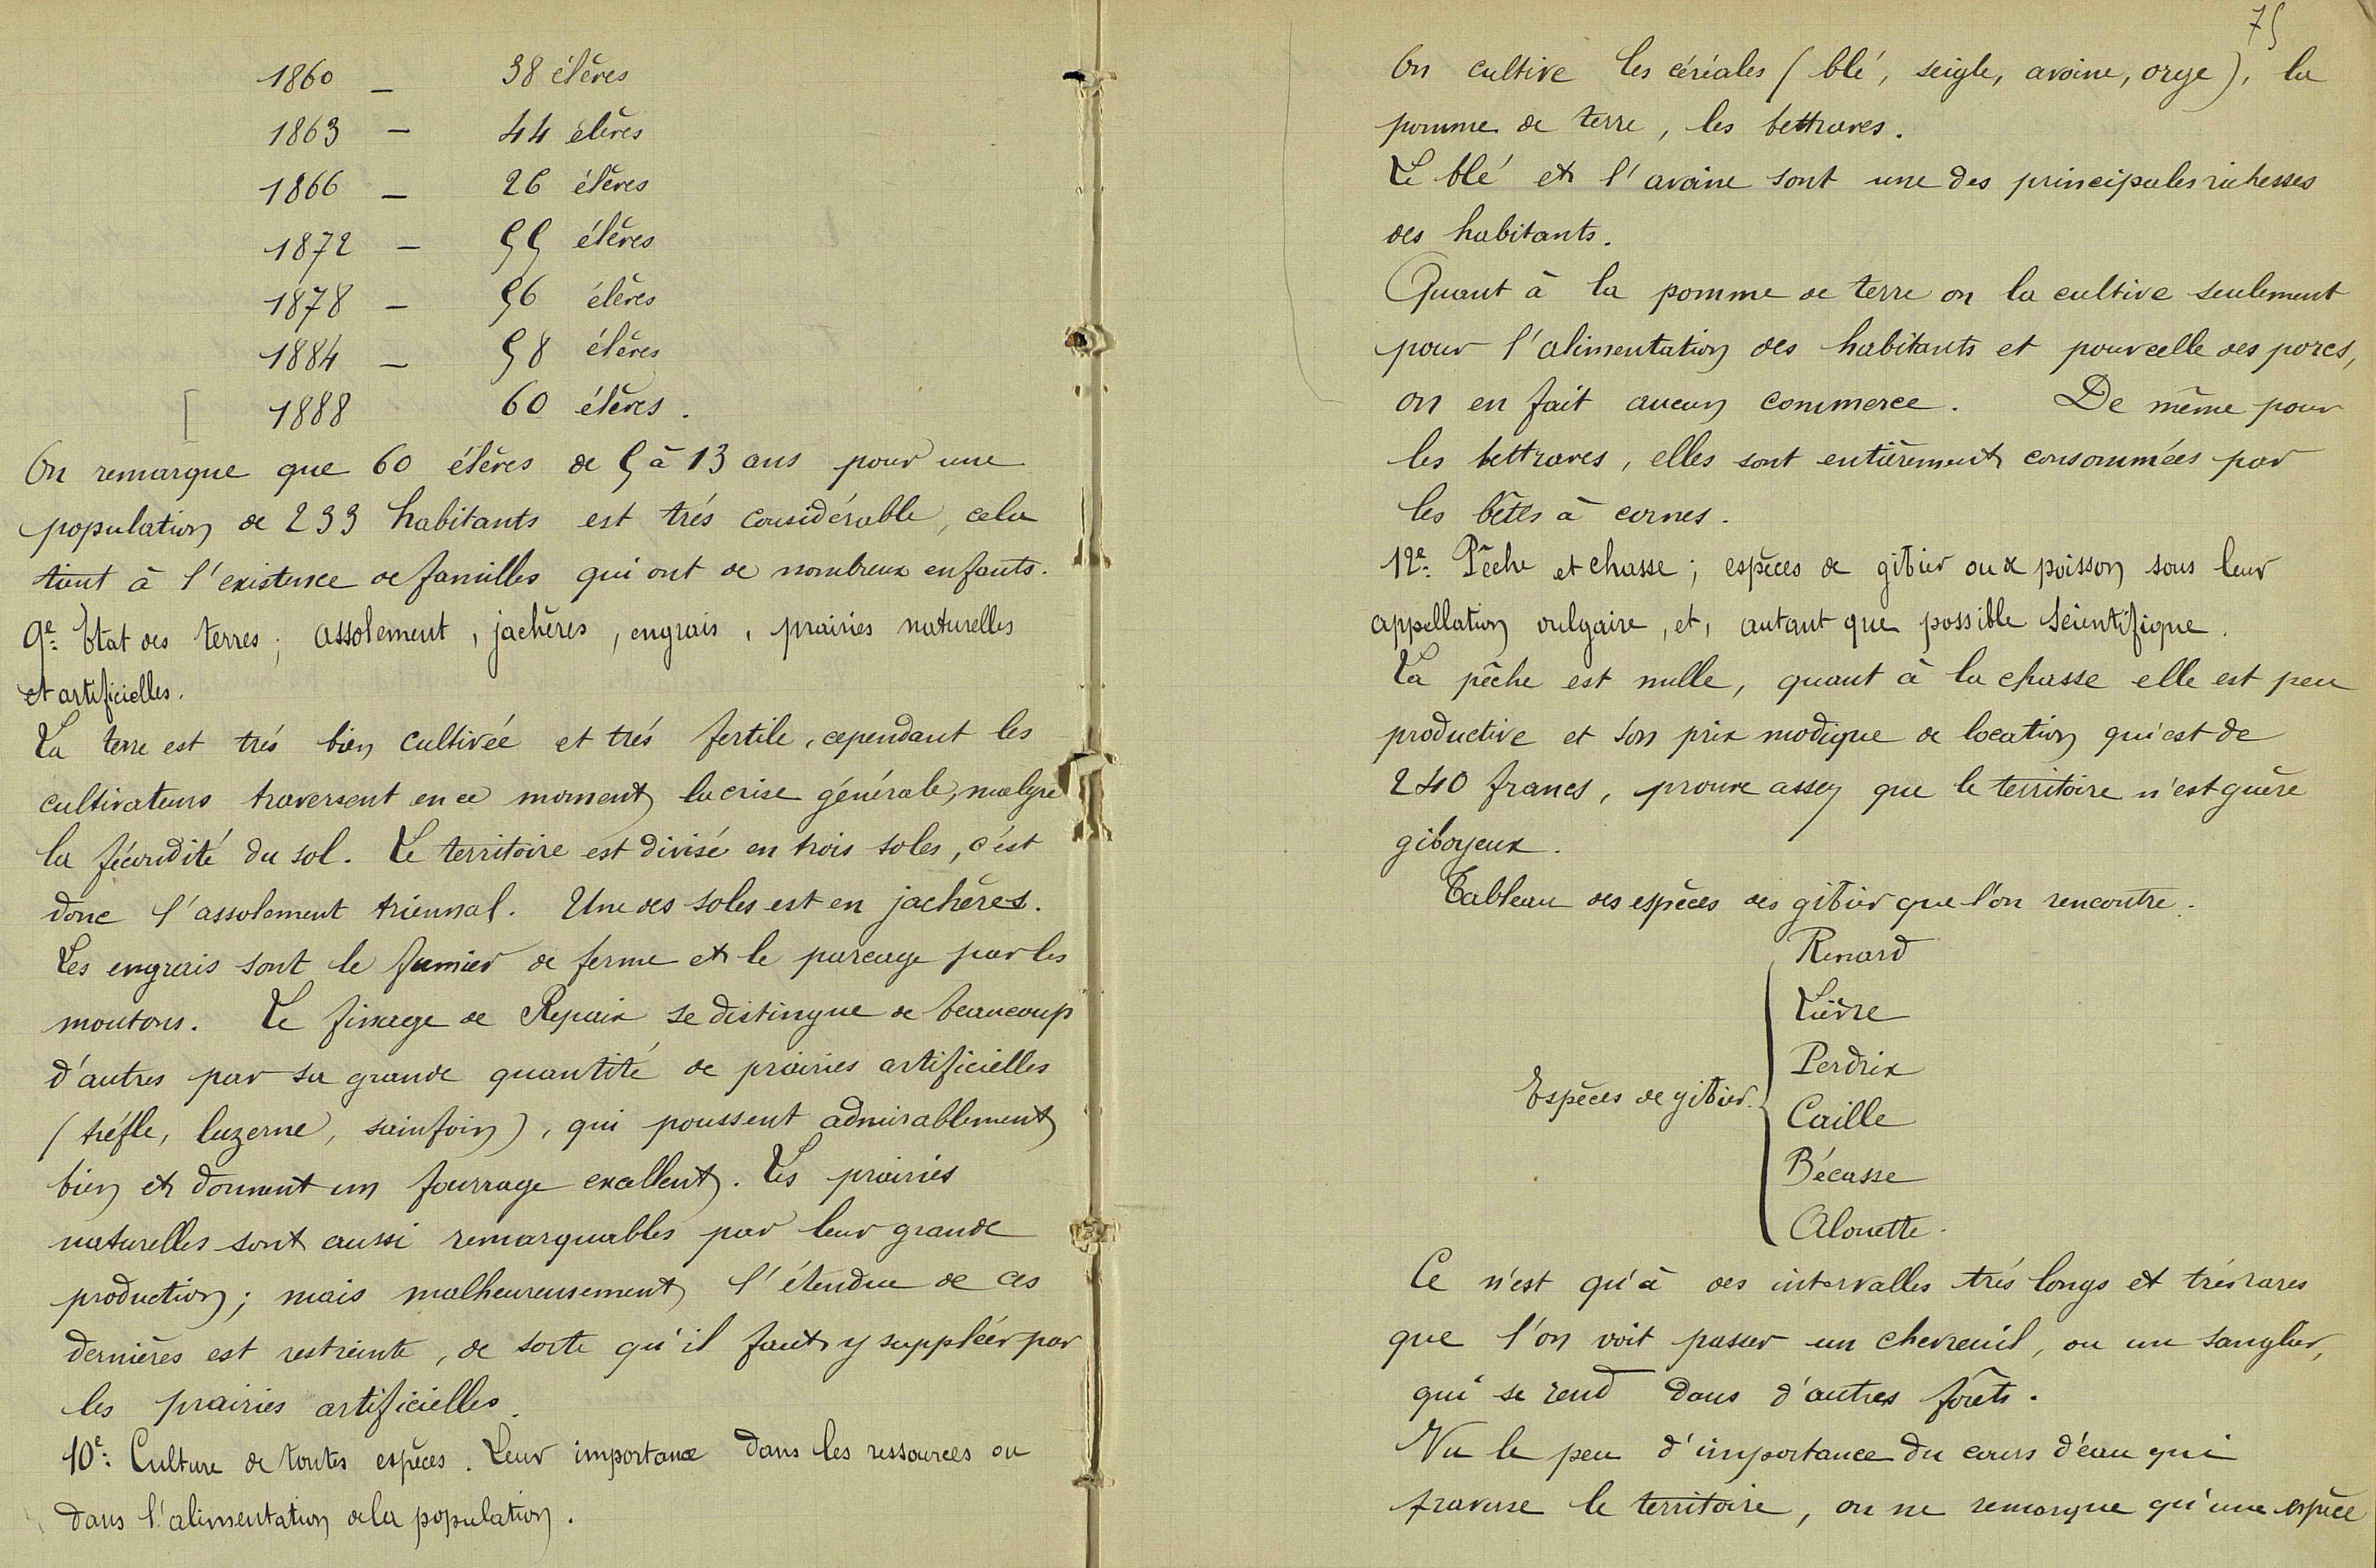 1860 – 38 élèves
1863 – 44 élèves
1866 – 26 élèves
1872 – 55 élèves
1878 – 56 élèves
1884 – 58 élèves
1888 60 élèves.
On remarque que 60 élèves de 5 à 13 ans pour une
population de 233 habitants est trés considérable, cela
tient à l'existence de familles qui ont de nombreux enfants.
9e: Etat des terres; assolement, jachères, engrais, prairies naturelles
et artificielles.
La terre est trés bien cultivée et trés fertile, cependant les
cultivateurs traversent en ce moment la crise générale, malgré
la fécondité du sol. Le territoire est divisé en trois soles, c'est
donc l'assolement triennal. Une des soles est en jachères.
Les engrais sont le fumier de ferme et le parcage par les
moutons. Le finage de Repaix se distingue de beaucoup
d'autres par sa grande quantité de prairies artificielles
(tréfle, luzerne, sainfoin), qui poussent admirablement
bien et donnent un fourrage excellent. Les prairies
naturelles sont aussi remarquables par leur grande
production; mais malheureusement l'étendue de ces
dernières est restreinte, de sorte qu'il faut y suppléer par
les prairies artificielles.
10e: Culture de toutes espèces. Leur importance dans les ressources ou
dans l'alimentation de la population.
75
On cultive les céréales (blé, seigle, avoine, orge), la
pomme de terre, les bettraves.
Le blé et l'avoine sont une des principales richesses
des habitants.
Quant à la pomme de terre on la cultive seulement
pour l'alimentation des habitants et pour celle des porcs,
on en fait aucun commerce. De même pour
les bettraves, elles sont entièrement consommées par
les bêtes à cornes.
12e: Pêche et chasse; espèces de gibier ou de poisson sous leur
appellation vulgaire, et, autant que possible scientifique.
La pêche est nulle, quant à la chasse elle est peu
productive et son prix modique de location qui est de
240 francs, prouve assez que le territoire n'est guère
giboyeux.
Tableau des espèces des gibier que l'on rencontre.
Espèces de gibier.
Renard
Lièvre
Perdrix
Caille
Bécasse
Alouette.
Ce n'est qu'à des intervalles trés longs et trés rares
que l'on voit passer un chevreuil, ou un sanglier,
qui se rend dans d'autres forêts.
Vu le peu d'importance du cours d'eau qui
traverse le territoire, on ne remarque qu'une espèce